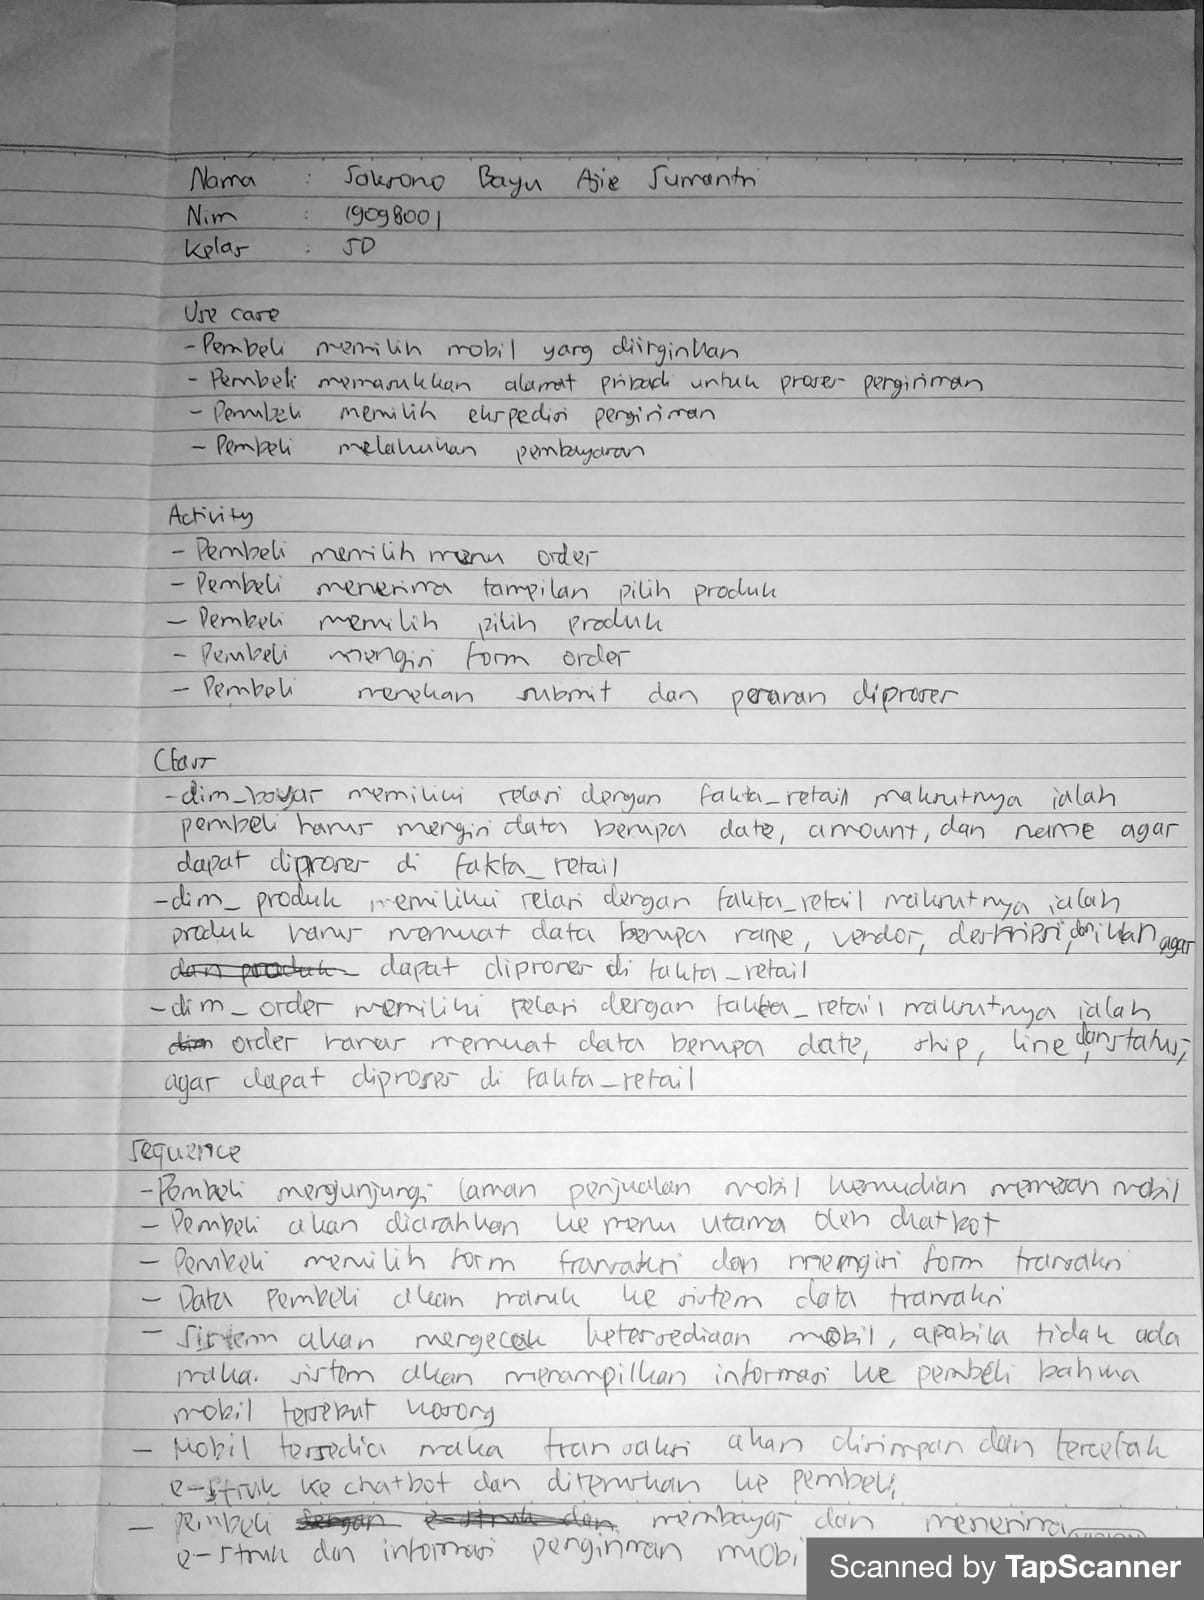 Nama : Sokrono Bayu Ajie Sumantri
Nim : 19098001
Kelas : 5D
Use case
- Pembeli memilih mobil yang diinginkan
- Pembeli memasukkan alamat pribadi untuk proses pengiriman
- Pembeli memilih ekspedisi pengiriman
- Pembeli melakukan pembayaran
Activity
- Pembeli memilih menu order
- Pembeli menerima tampilan pilih produk
- Pembeli memilih pilih produk
- Pembeli mengisi form order
- Pembeli menekan submit dan pesanan diproses
Class
- dim_bayar memiliki relasi dengan fakta_retail maksutnya ialah
pembeli harus mengisi data berupa date, amount, dan name agar
dapat diproses di fakta_retail
- dim_produk memiliki relasi dengan fakta_retail maksutnya ialah
produk harus memuat data berupa name, vendor, deskripsi, dan agar
dan produk dapat diproses di fakta_retail
- dim_order memiliki relasi dengan fakta_retail maksutnya ialah
dim order harus memuat data berupa date, ship, line dan status,
agar dapat diproses di fakta_retail
Sequence
- Pembeli mengunjungi laman penjualan mobil kemudian memesan mobil
- Pembeli akan diarahkan ke menu utama oleh chatbot
- Pembeli memilih form transaksi dan mengisi form transaksi
- Data Pembeli akan masuk ke sistem data transaksi
- Sistem akan mengecek ketersediaan mobil, apabila tidak ada
maka sistem akan menampilkan informasi ke pembeli bahwa
mobil tersebut kosong
- Mobil tersedia maka transaksi akan disimpan dan tercetak
e-struk ke chatbot dan diteruskan ke pembeli,
- pembeli dengan e-struk dan membayar dan menerima
e-struk dan informasi pengiriman mobi
Scanned by TapScanner